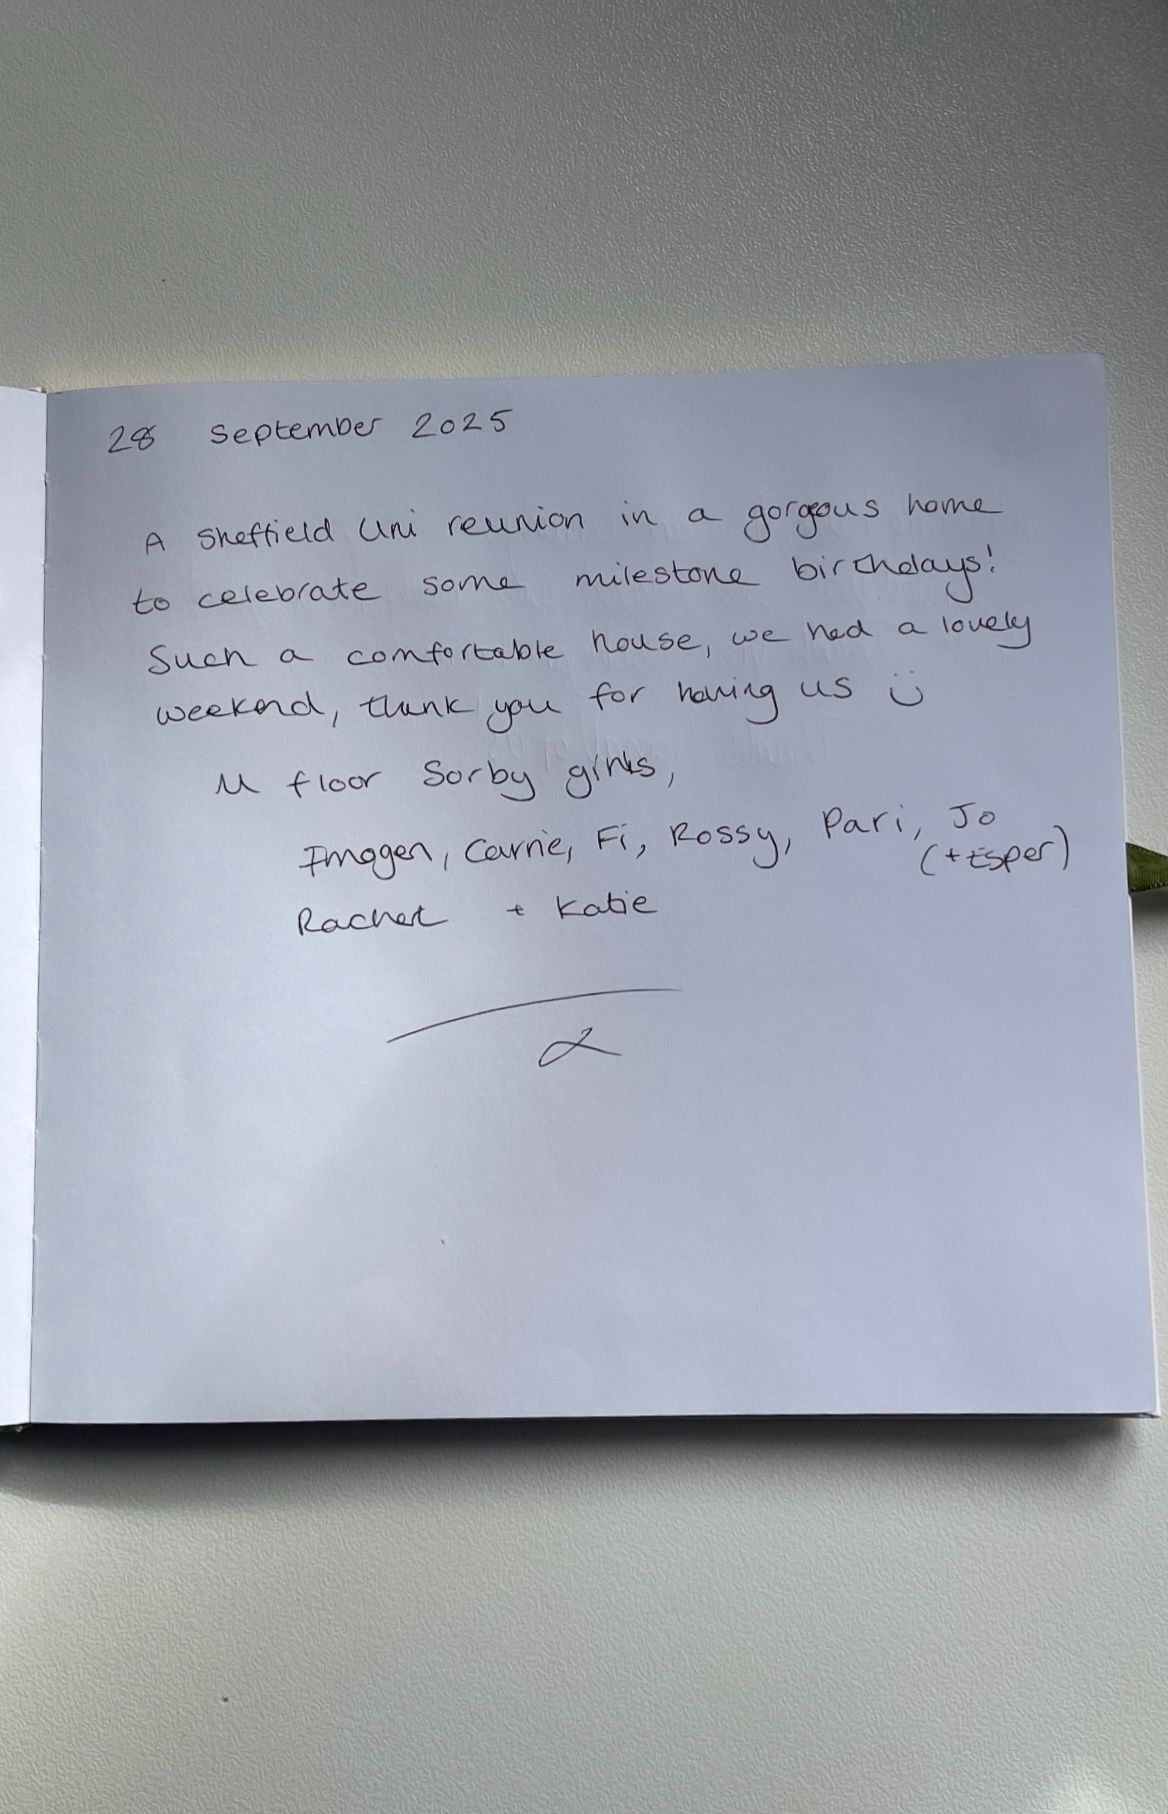 28 September 2025
A Sheffield Uni reunion in a gorgeous home
to celebrate some milestone birthdays!
Such a comfortable house, we had a lovely
weekend, thank you for having us ü
M floor Sorby girls,
Imogen, Carrie, Fi, Rossy, Pari, Jo
(+Esper)
Rachel + Katie
x